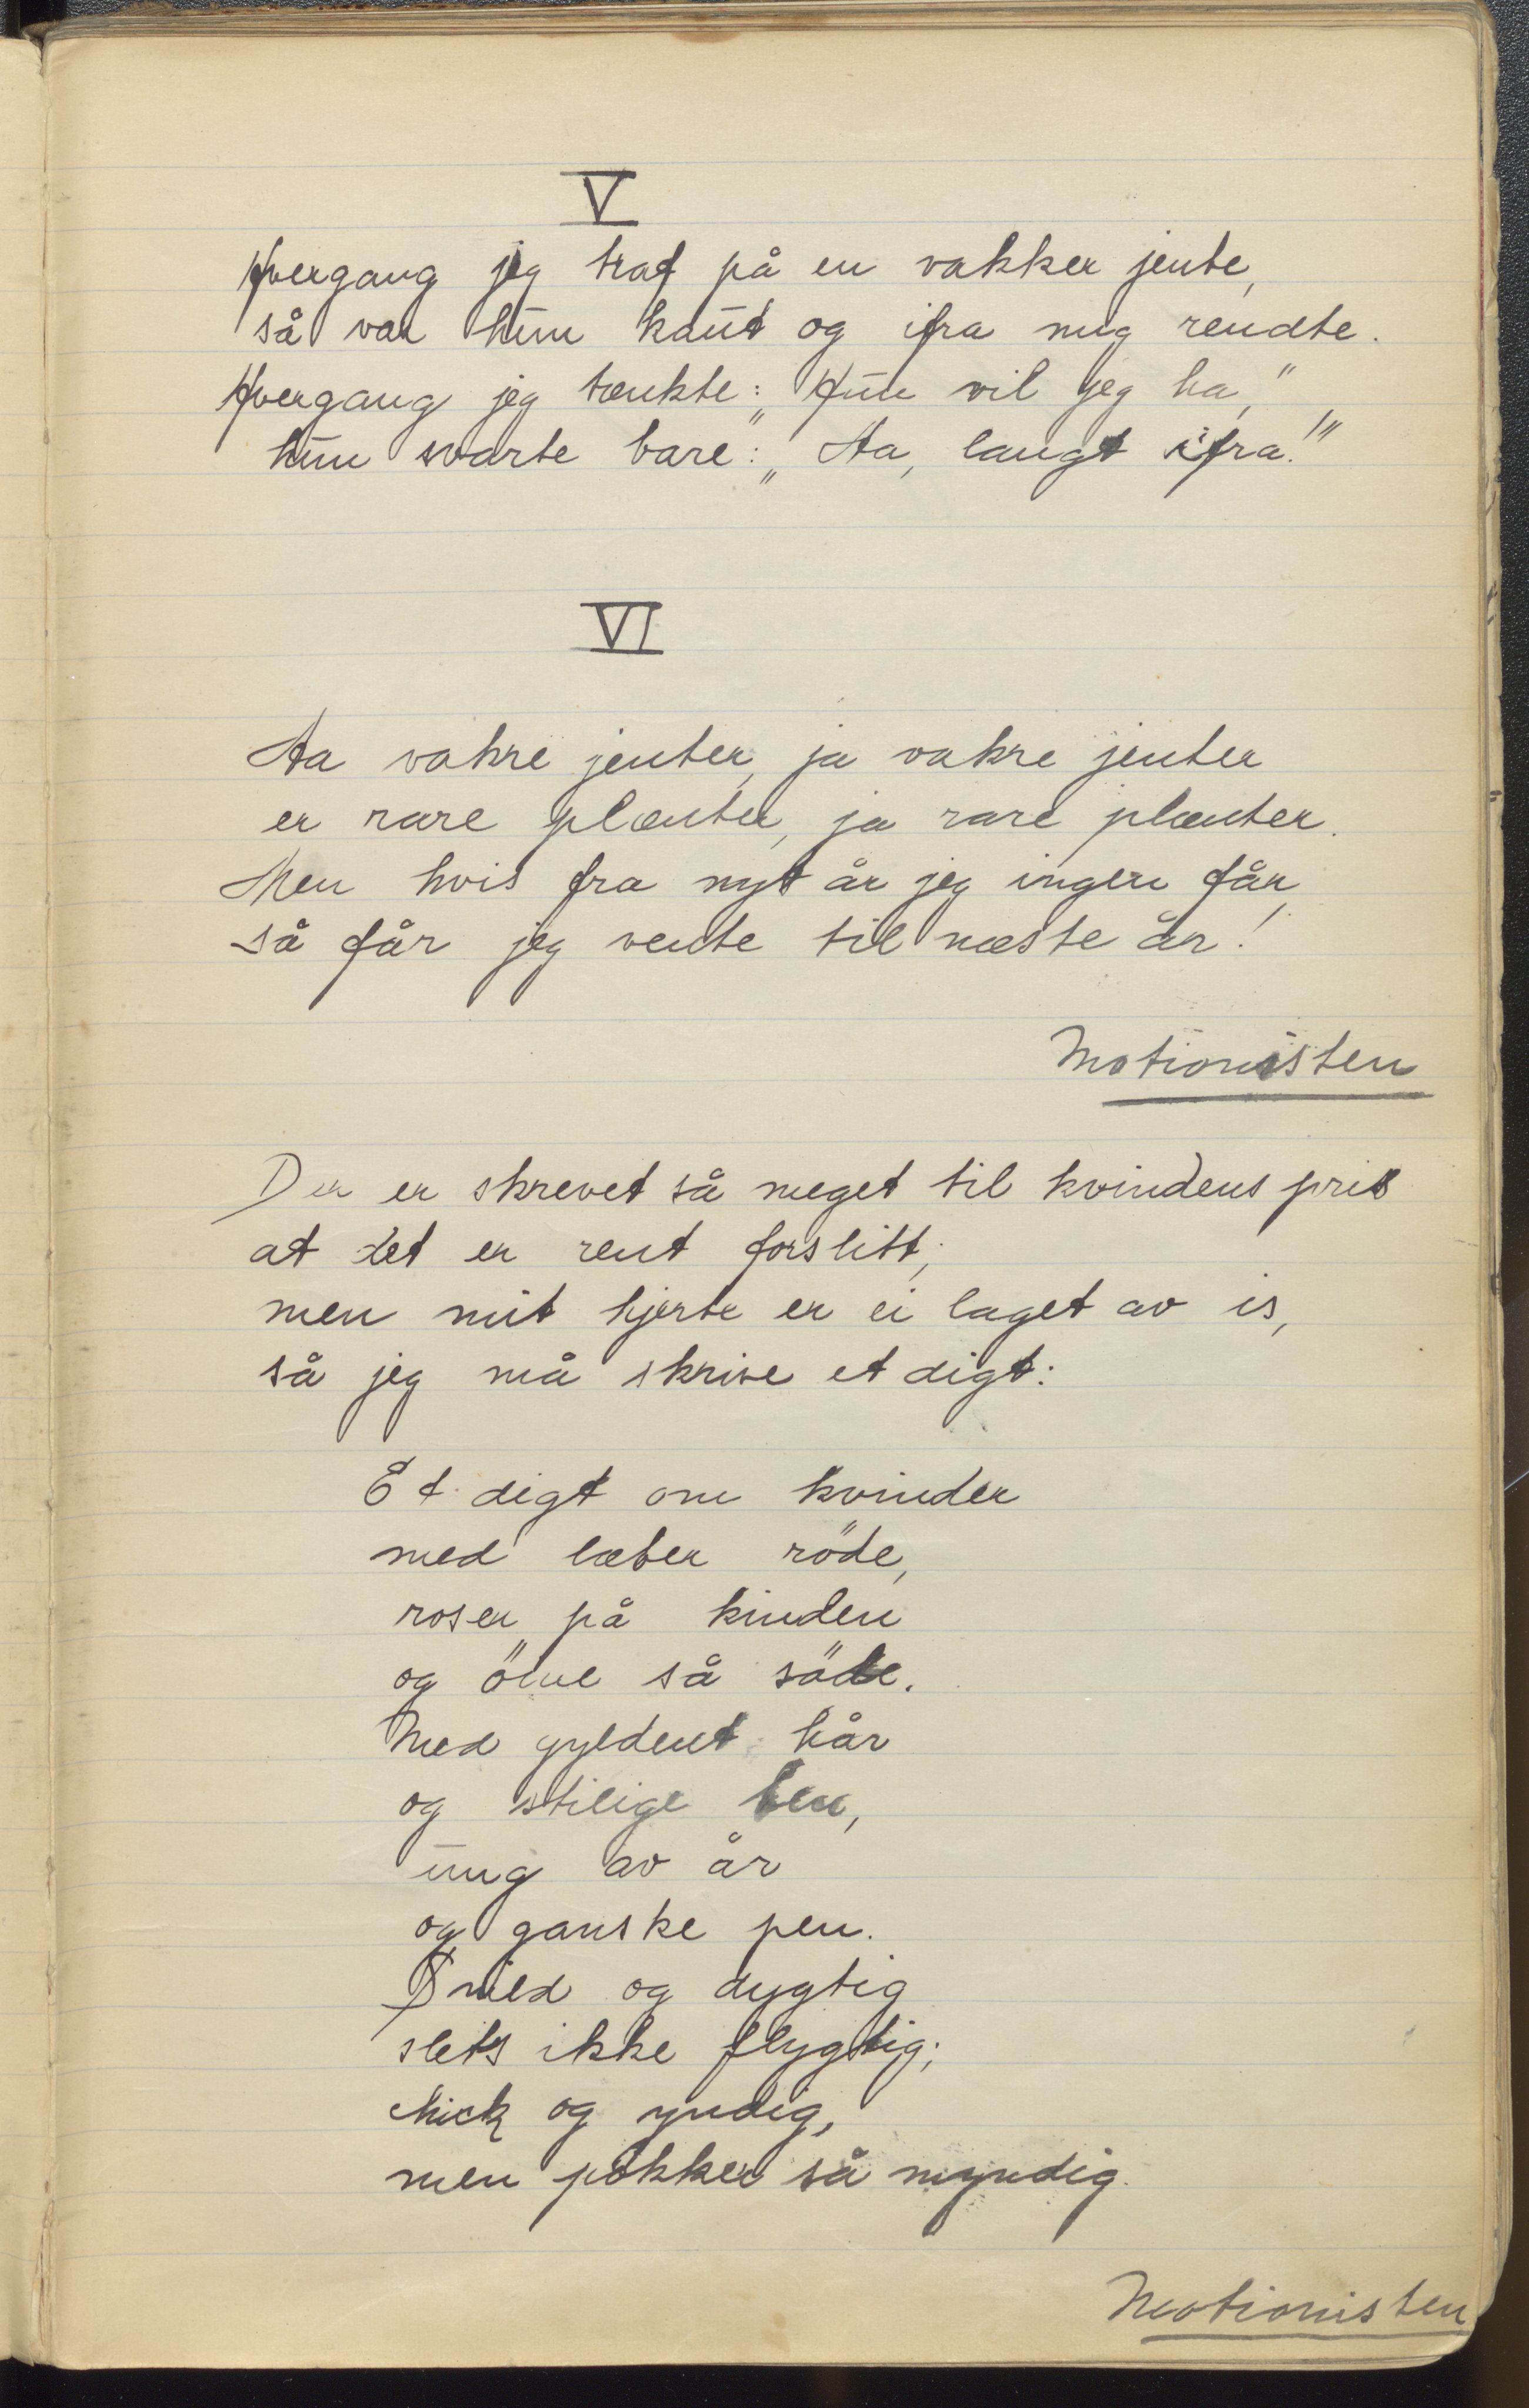 V
Hvergang jeg traf på en vakker jente,
så var hun kaut og ifra mig rendte.
Hvergang jeg tænkte: „Hun vil jeg ha,"
hun svarte bare: „Aa, langt ifra!"
VI
Aa vakre jenter, ja vakre jenter
er rare plænter, ja rare plænter.
Men hvis fra nyt år jeg ingen får,
så får jeg vente til næste år!
Motionisten
Der er skrevet så meget til kvindens pris
at det er rent forslitt;
men mit hjerte er ei laget av is,
så jeg må skrive et digt:
Et digt om kvinder
med læber röde,
roser på kinden
og öine så söde.
Med gyldent hår
og stilige ben,
ung av år
og ganske pen.
Snild og dygtig
slets ikke flygtig;
chick og yndig,
men pokker så myndig.
Motionisten